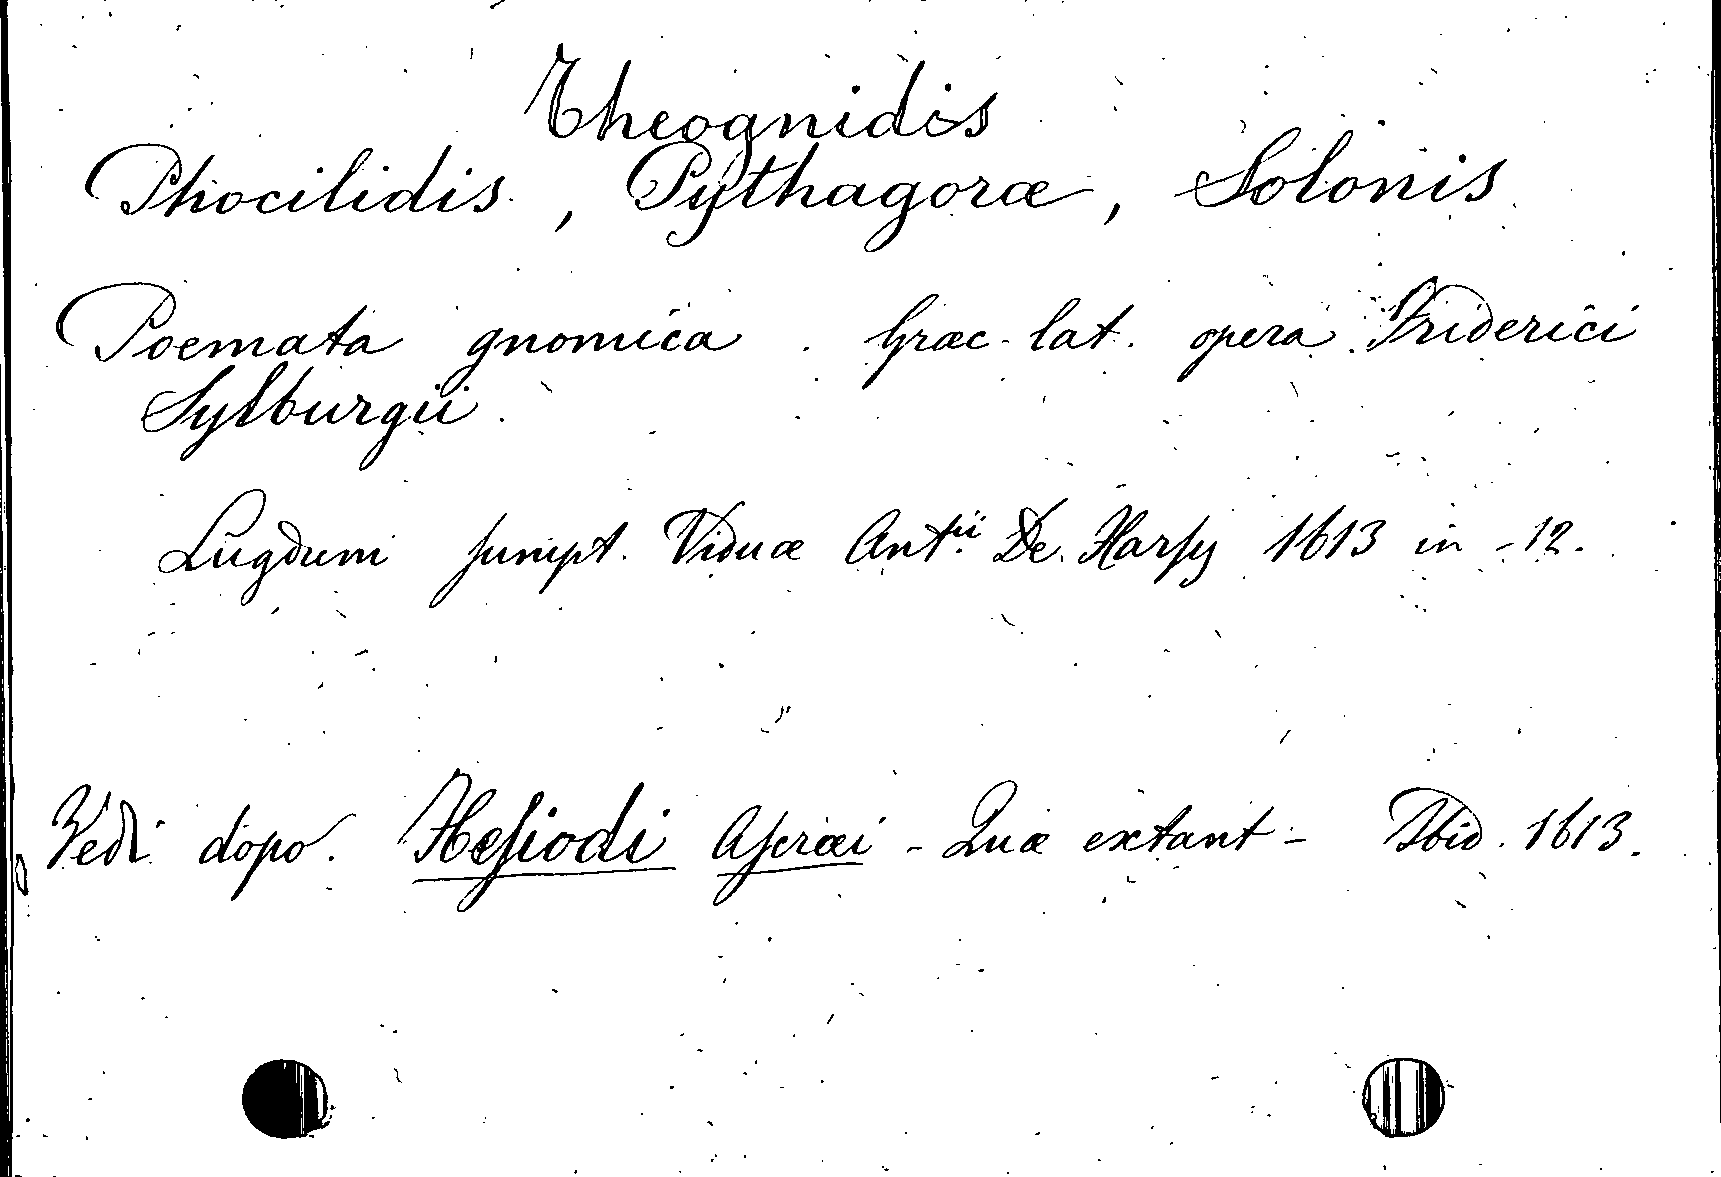 Theognidis
Phocilidis, Pythagoræ, Solonis
Poemata gnomica. Græc-lat. opera Friderici
Sylburgii.
Lugduni sumpt. Viduæ Ant.ii De Harsy 1613 in-12.
Vedi dopo. Hesiodi Ascræi - Quæ extant - Ibid. 1613.